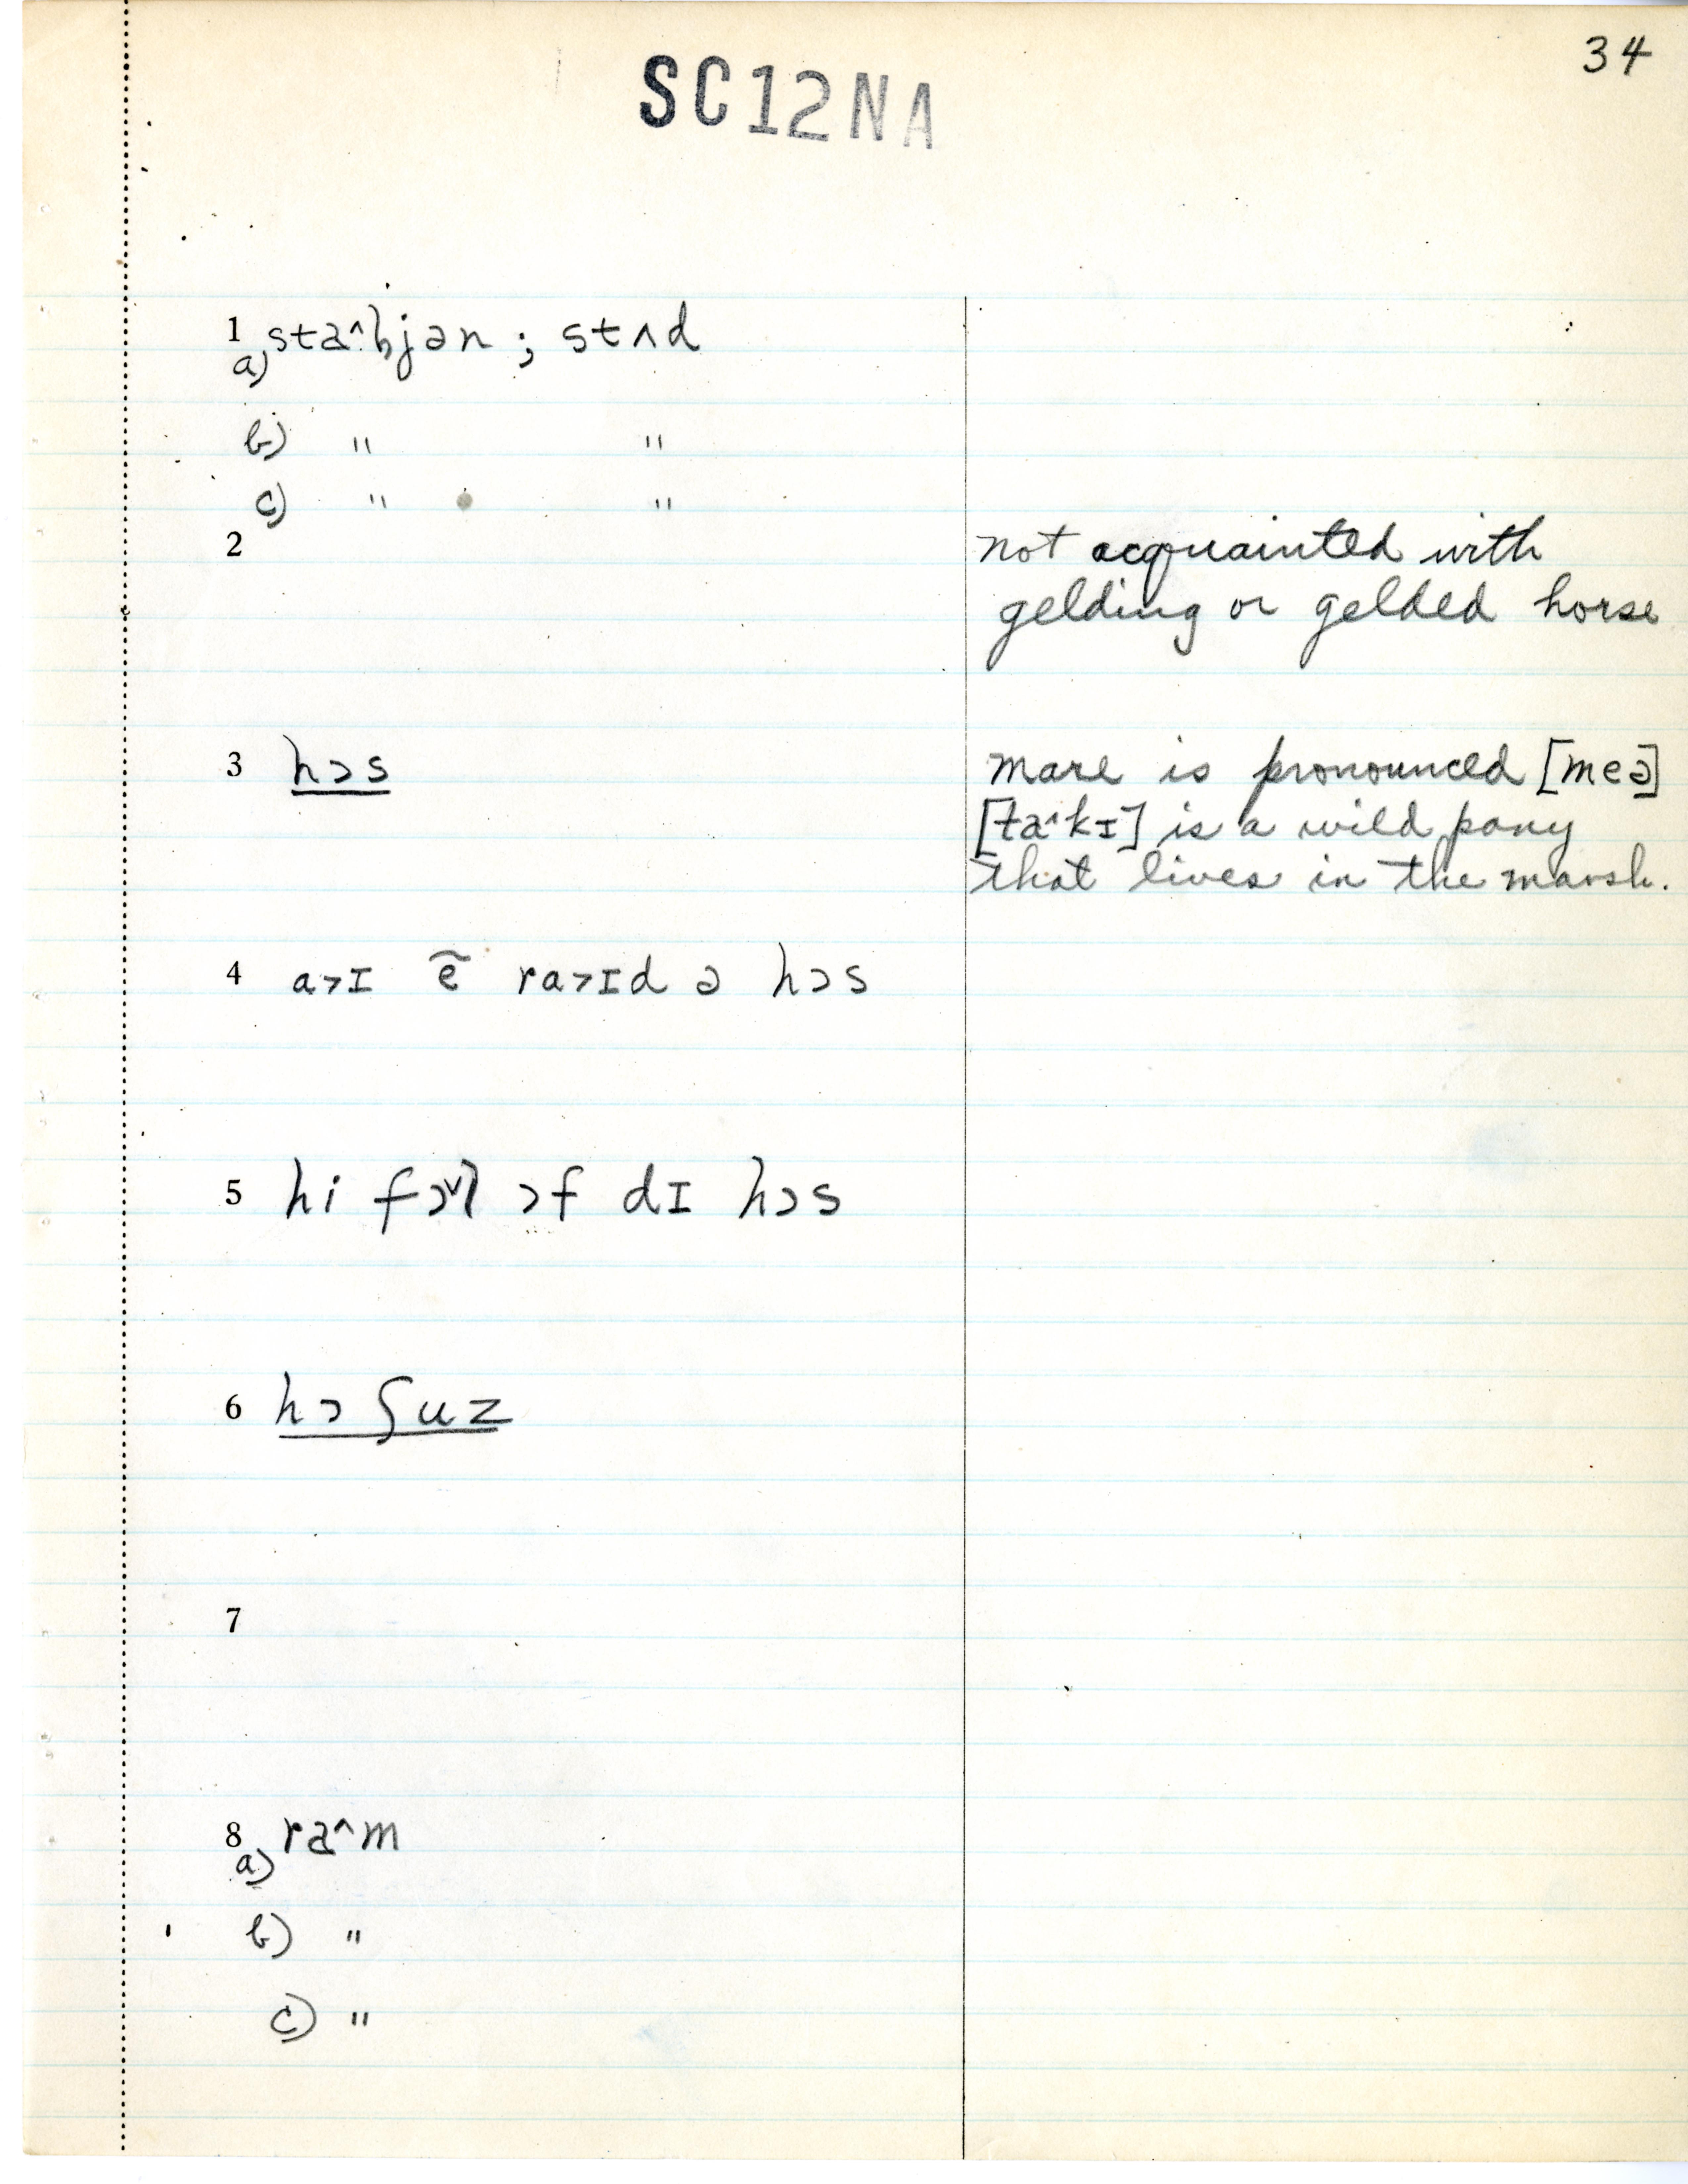 34
SC12NA
1 a) staˆl̥jən ; stʌd
b) " "
c) " "
2 not acquainted with
gelding or gelded horse
3 hɔs
mare is pronounced [meə]
[taˆkɪ] is a wild pony
that lives in the marsh.
4 a>ɪ ẽ ra>ɪd ə hɔs
5 hi fɔˇl ɔf dɪ hɔs
6 hɔ ʃuz
7
8 a) raˆm
b) "
c) "